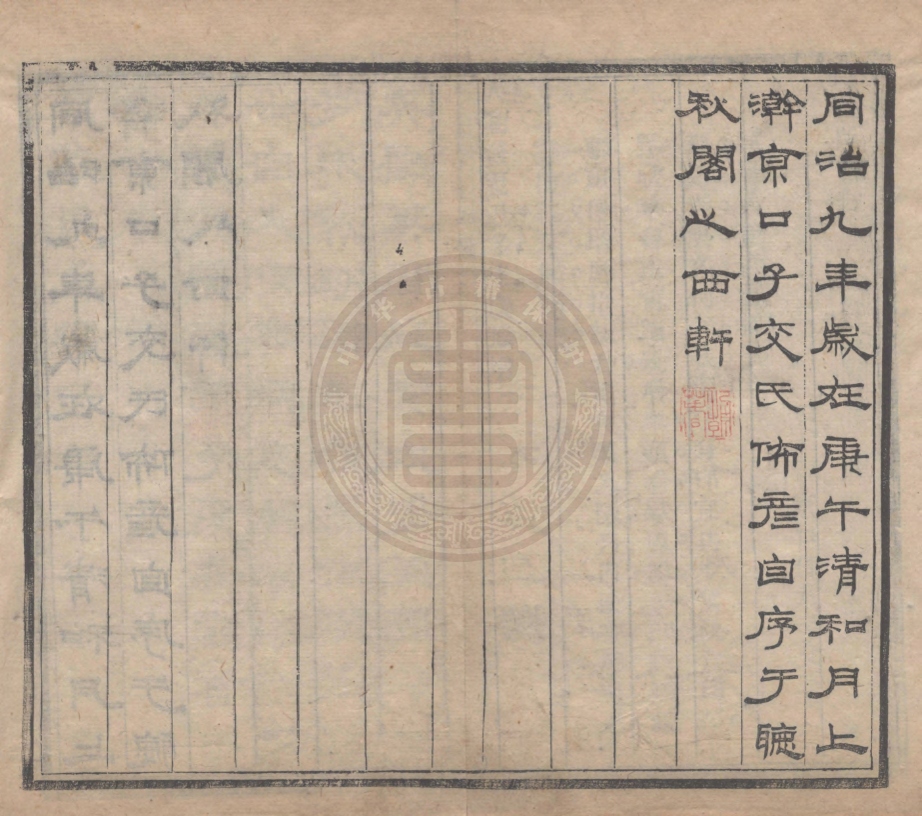 同治九年歲在庚午清和月上
澣京口子交氏佈彥自序于聽
秋閣之西軒